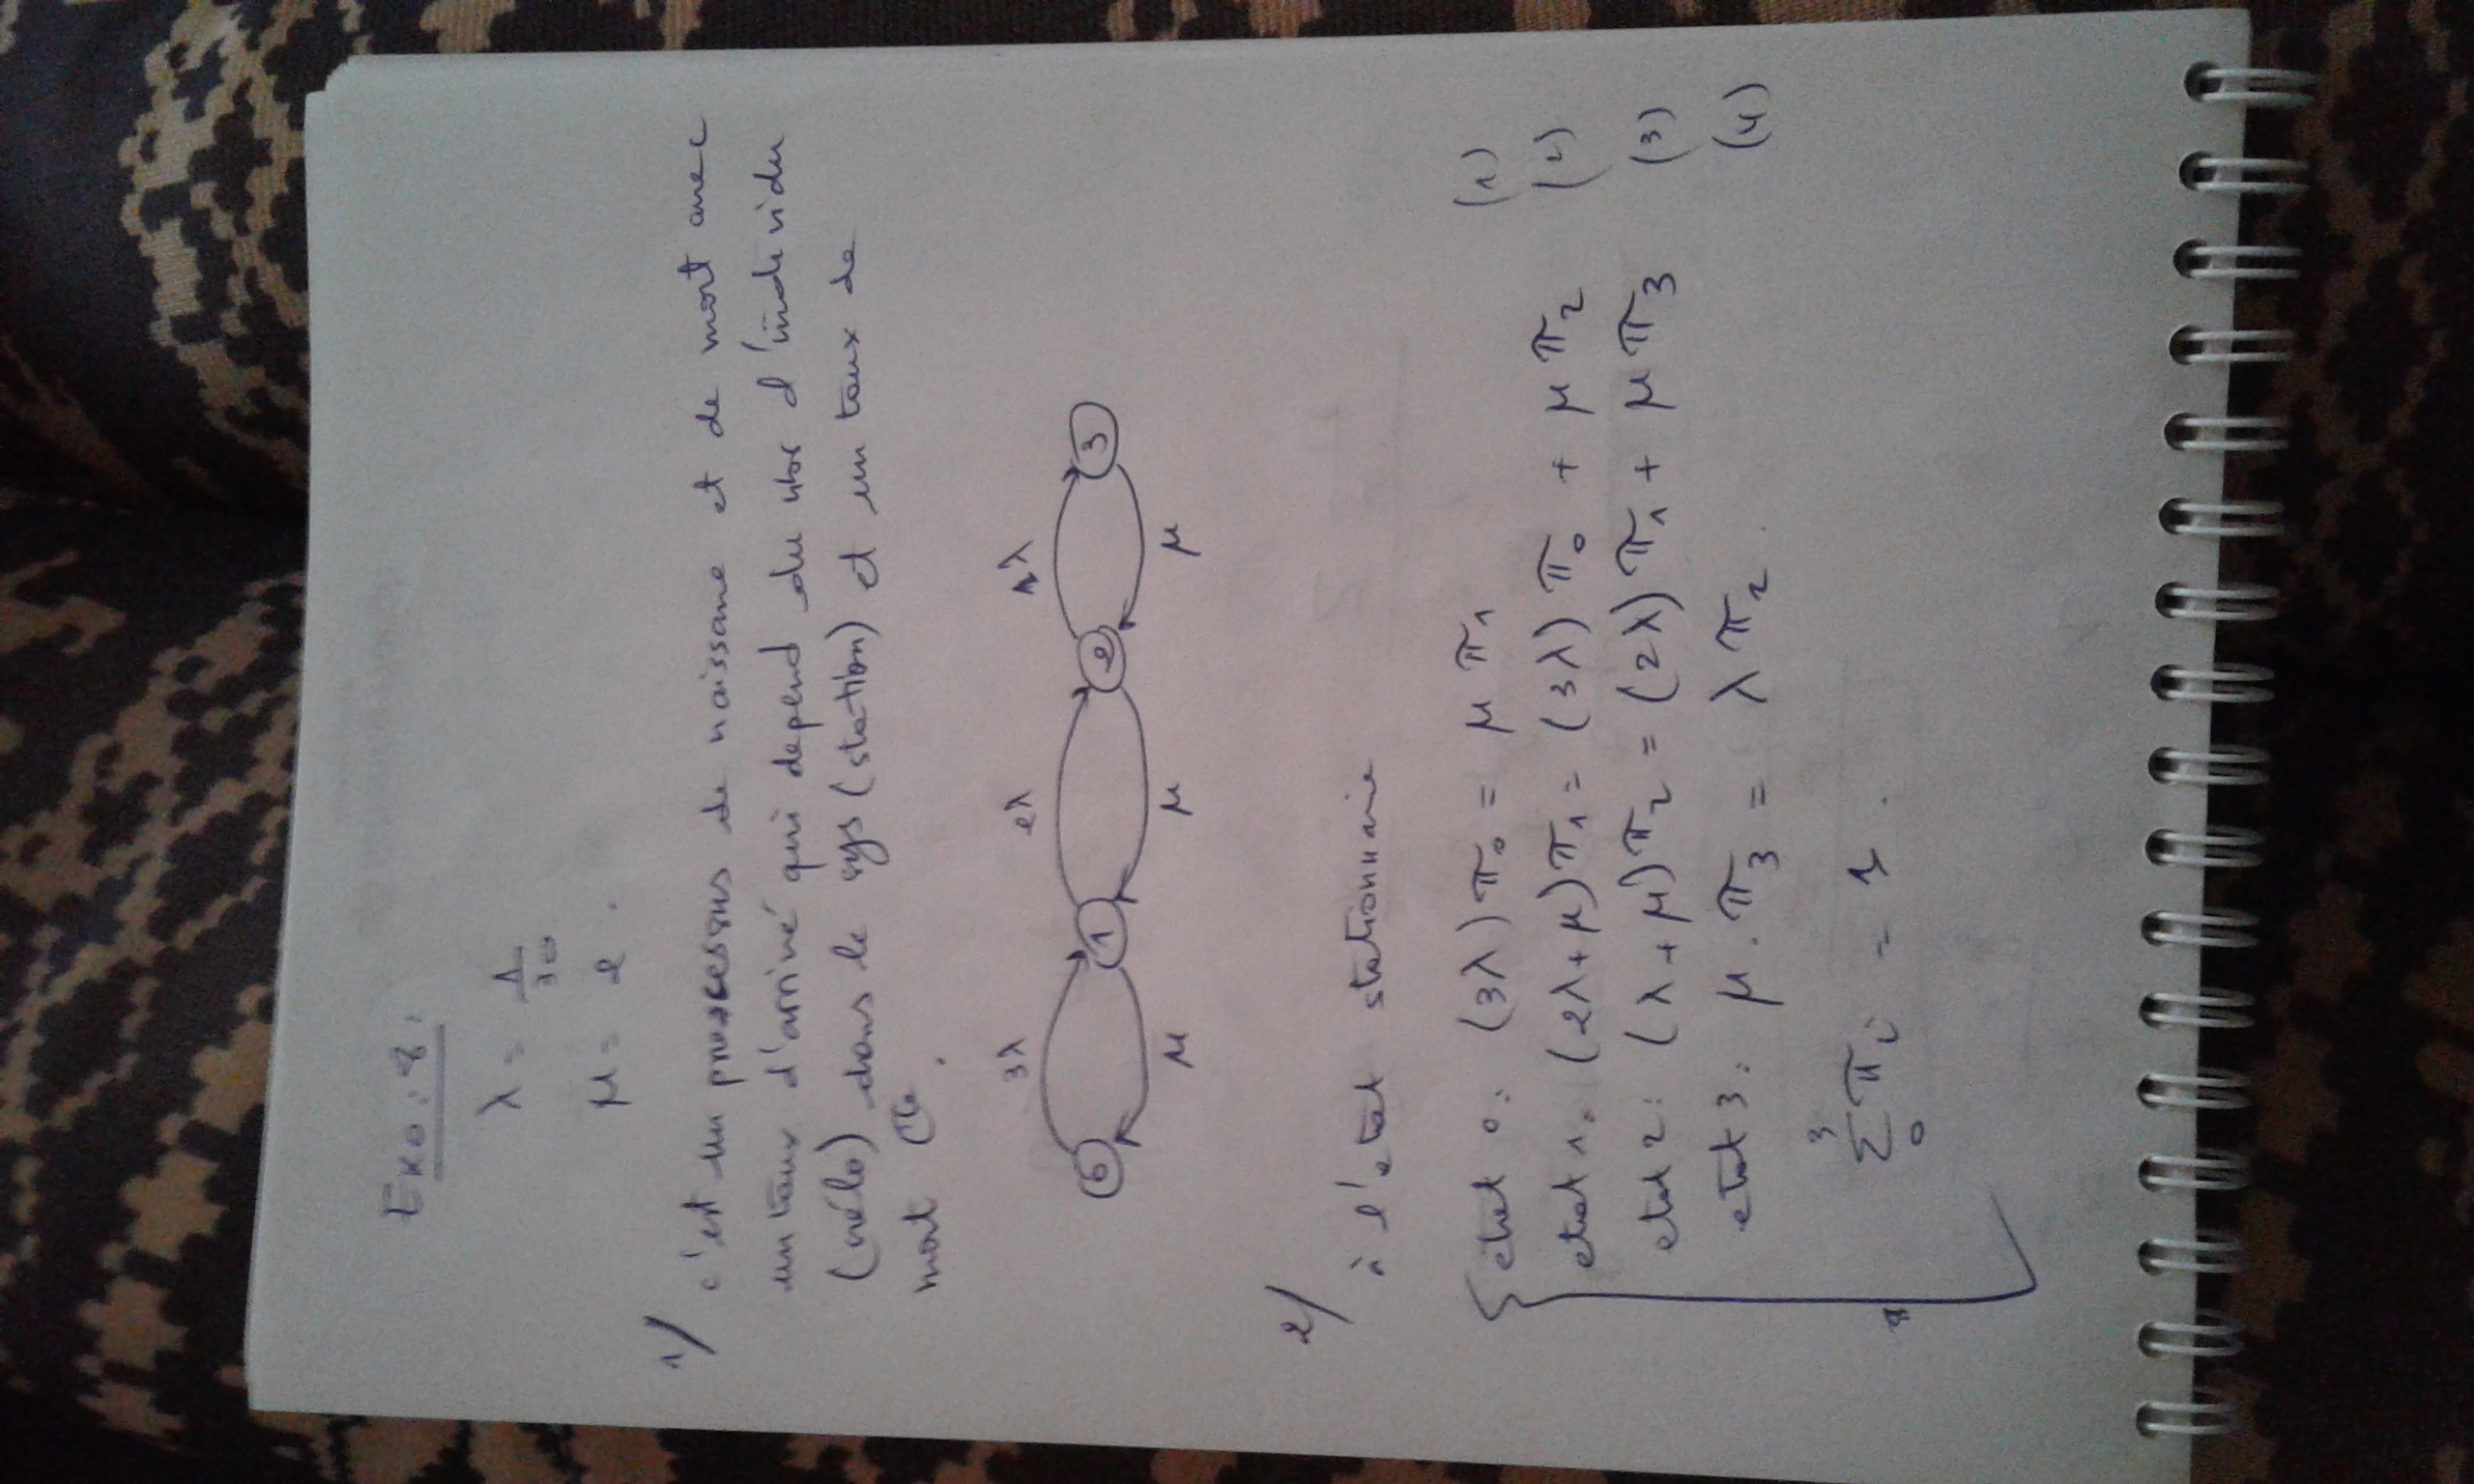 Exo : 8 :
λ = 1/30
μ = 2 .
1/ c'est un processus de naissane et de mort avec
un taux d'arrivé qui depend du nbr d'individu
(vélo) dans le sys (station) et un taux de
mort Cte .
3λ 2λ 1λ
0 1 2 3
μ μ μ
2/
à l'etat stationnaire
etat 0 : (3λ) π₀ = μ π₁ (1)
etat 1 : (2λ+μ) π₁ = (3λ) π₀ + μ π₂ (2)
etat 2 : (λ+μ) π₂ = (2λ) π₁ + μ π₃ (3)
etat 3 : μ . π₃ = λ π₂ . (4)
3
Σ πᵢ = 1 .
0